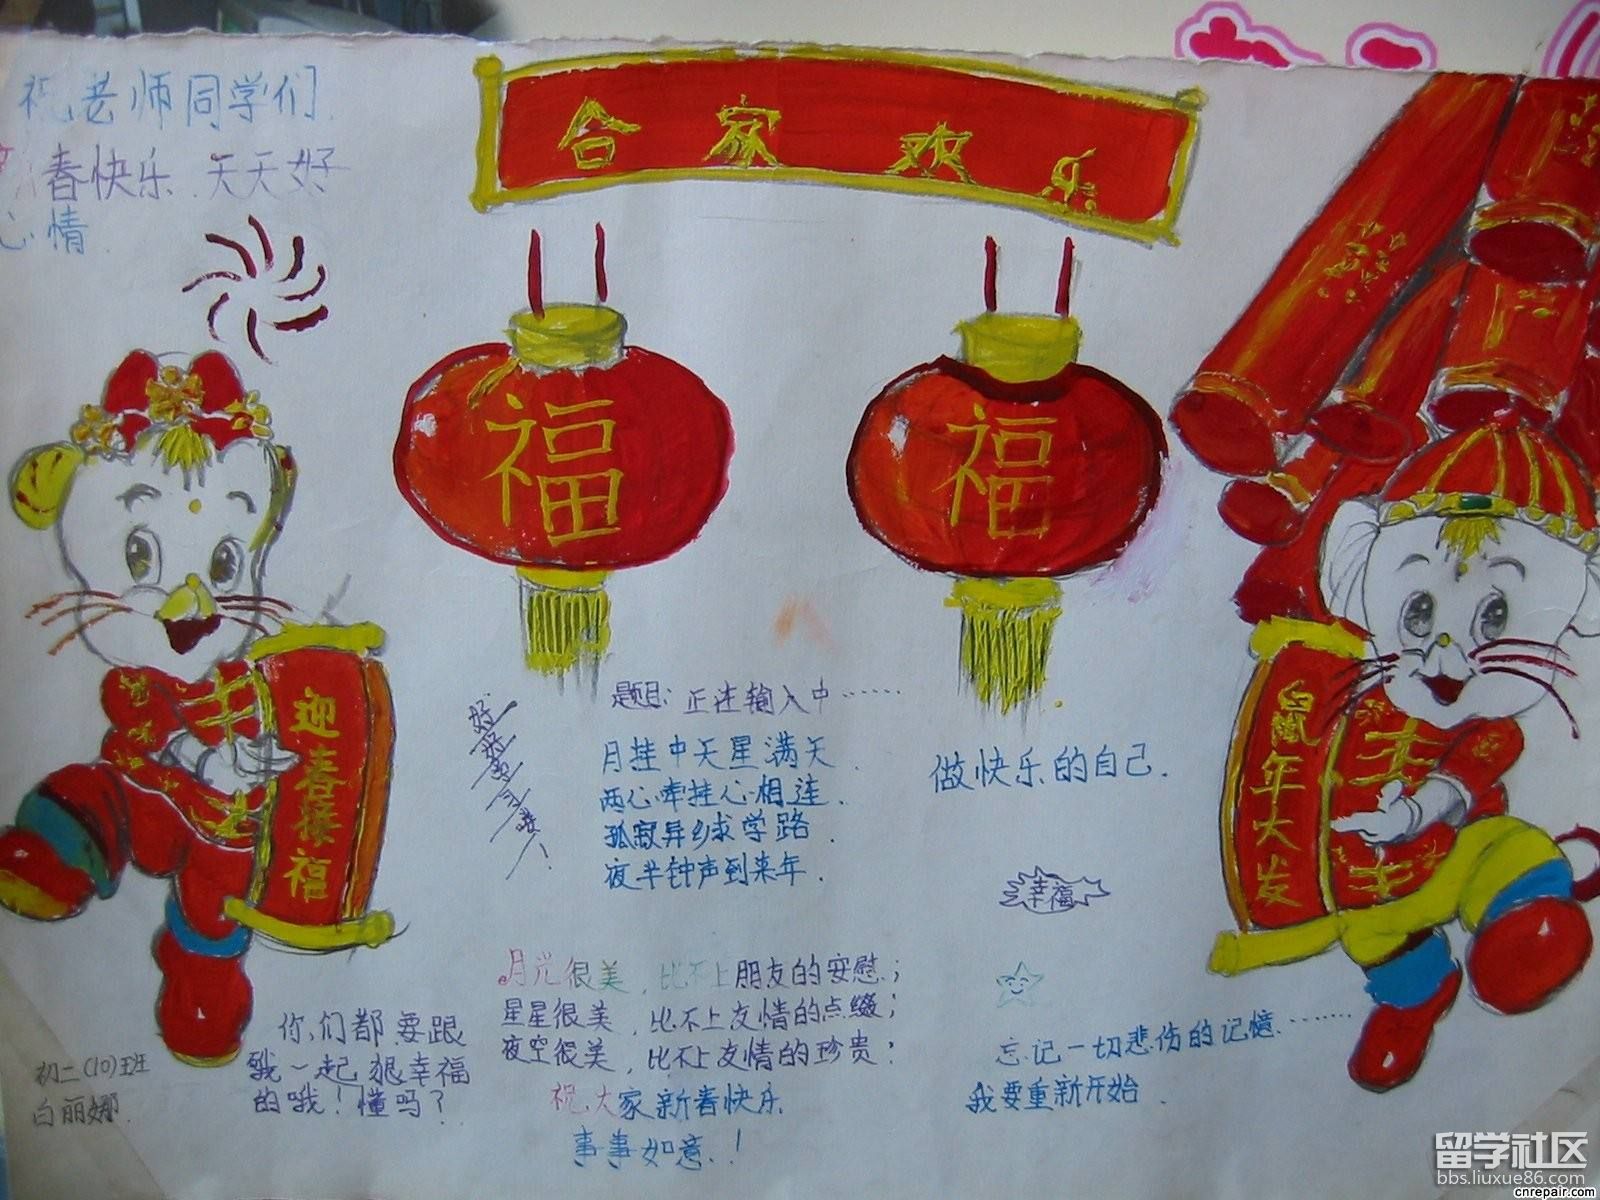 祝老师同学们
新春快乐.天天好
心情.
合家欢乐
福
福
迎春接福
鼠年大发
题目:正在输入中……
月挂中天星满天.
两心牵挂心相连.
孤寂异乡求学路.
夜半钟声到来年.
做快乐的自己.
幸福
月光很美,比不上朋友的安慰;
星星很美,比不上友情的点缀;
夜空很美,比不上友情的珍贵;
祝大家新春快乐
事事如意.!
忘记一切悲伤的记憶……
我要重新开始.
你们都要跟
我一起狠幸福
的哦!懂吗?
初二(10)班
白丽娜.
留学社区
bbs.liuxue86.com
cnrepair.com